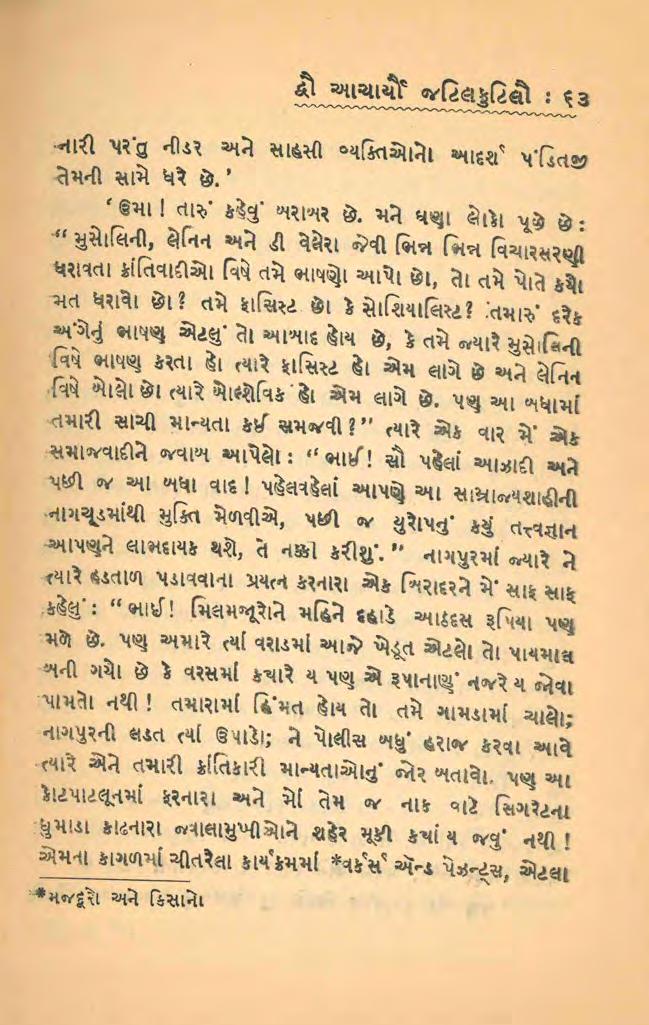 દ્વૌ આચાર્યૌ જટિલકુટિલૌ : ૬૩
નારી પરંતુ નીડર અને સાહસી વ્યક્તિઓનો આદર્શ પંડિતજી
તેમની સામે ધરે છે.’
‘ઉમા ! તારું કહેવું બરાબર છે. મને ઘણા લોકો પૂછે છે :
“ મુસોલિની, લેનિન અને ડી વેલેરા જેવી ભિન્ન ભિન્ન વિચારસરણી
ધરાવતા ક્રાંતિવાદીઓ વિષે તમે ભાષણો આપો છો, તો તમે પોતે કયો
મત ધરાવો છો ? તમે ફાસિસ્ટ છો કે સોશિયાલિસ્ટ ? તમારું દરેક
અંગેનું ભાષણ એટલું તો આબાદ હોય છે, કે તમે જ્યારે મુસોલિની
વિષે ભાષણ કરતા હો ત્યારે ફાસિસ્ટ હો એમ લાગે છે અને લેનિન
વિષે બોલો છો ત્યારે બોલ્શેવિક હો એમ લાગે છે. પણ આ બધામાં
તમારી સાચી માન્યતા કઈ સમજવી ?” ત્યારે એક વાર મેં એક
સમાજવાદીને જવાબ આપેલો : “ ભાઈ ! સૌ પહેલાં આઝાદી અને
પછી જ આ બધા વાદ ! પહેલવહેલાં આપણે આ સામ્રાજ્યશાહીની
નાગચૂડમાંથી મુક્તિ મેળવીએ, પછી જ યુરોપનું કયું તત્ત્વજ્ઞાન
આપણુને લાભદાયક થશે, તે નક્કી કરીશું.” નાગપુરમાં જ્યારે ને
ત્યારે હડતાળ પડાવવાના પ્રયત્ન કરનારા એક બિરાદરને મેં સાફ સાફ
કહેલું : “ ભાઈ ! મિલમજૂરોને મહિને દહાડે આઠદસ રૂપિયા પણ
મળે છે. પણ અમારે ત્યાં વરાડમાં આજે ખેડૂત એટલો તો પાયમાલ
બની ગયો છે કે વરસમાં કયારે ય પણ એ રૂપાનાણું નજરે ય જોવા
પામતો નથી ! તમારામાં હિંમત હોય તો તમે ગામડામાં ચાલો;
નાગપુરની લડત ત્યાં ઉપાડો; ને પોલીસ બધું હરાજ કરવા આવે
ત્યારે એને તમારી ક્રાંતિકારી માન્યતાઓનું જોર બતાવો. પણ આ
કોટપાટલૂનમાં ફરનારા અને મોં તેમ જ નાક વાટે સિગરેટના
ધુમાડા કાઢનારા જવાલામુખીઓને શહેર મૂકી કયાં ય જવું નથી !
એમના કાગળમાં ચીતરેલા કાર્યક્રમમાં *વર્કર્સ ઍન્ડ પેઝન્ટ્સ, એટલા
*મજદૂરો અને કિસાનો